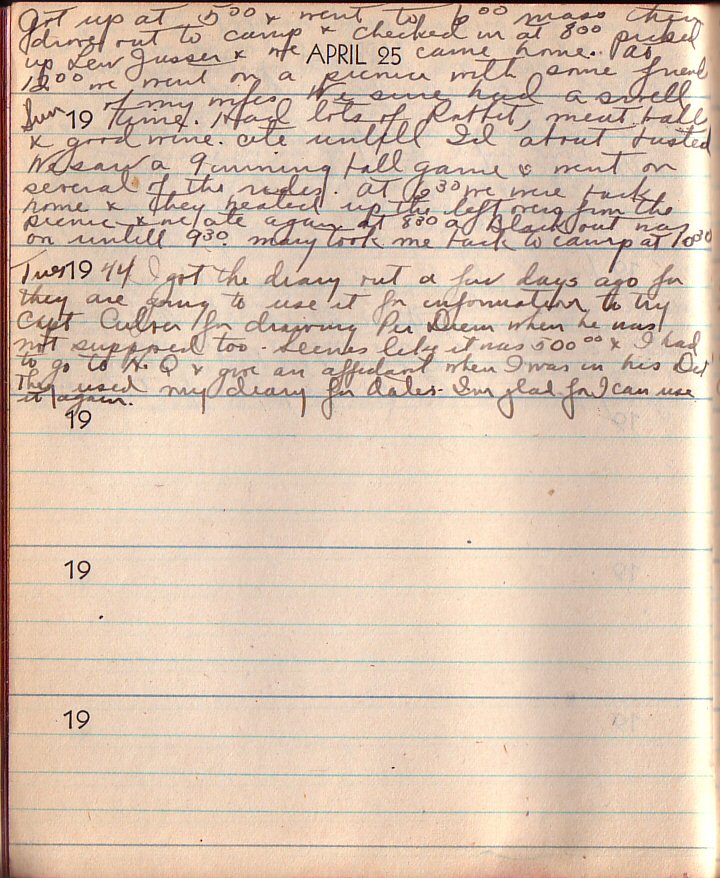 Got up at 5 00 & went to 6 00 mass then
drove out to camp & checked in at 8 00 picked
up Lew & we came home. at
APRIL 25
12 00 we went on a picnic with some friend
of my wifes We sure had a swell
Sun 19 time. Had lots of Rabbit, meat ball
& good wine. ate untill I'd about busted
We saw a 9 inning ball game & went on
several of the rides. at 6 30 we were back
home & they heated up the left overs from the
picnic & we ate again at 8 30 a Black out was
on untill 9 30. Mary took me back to camp at 10 30
Tues 19 44 I got the diary out a few days ago for
they are going to use it for information to try
Capt Culver for drawing Per Diem when he was
not supposed too. Seems like it was 500 00 & I had
to go to H. Q & give an affidavit when I was in his Det
They used my diary for dates. I'm glad for I can use
it again.
19
19
19